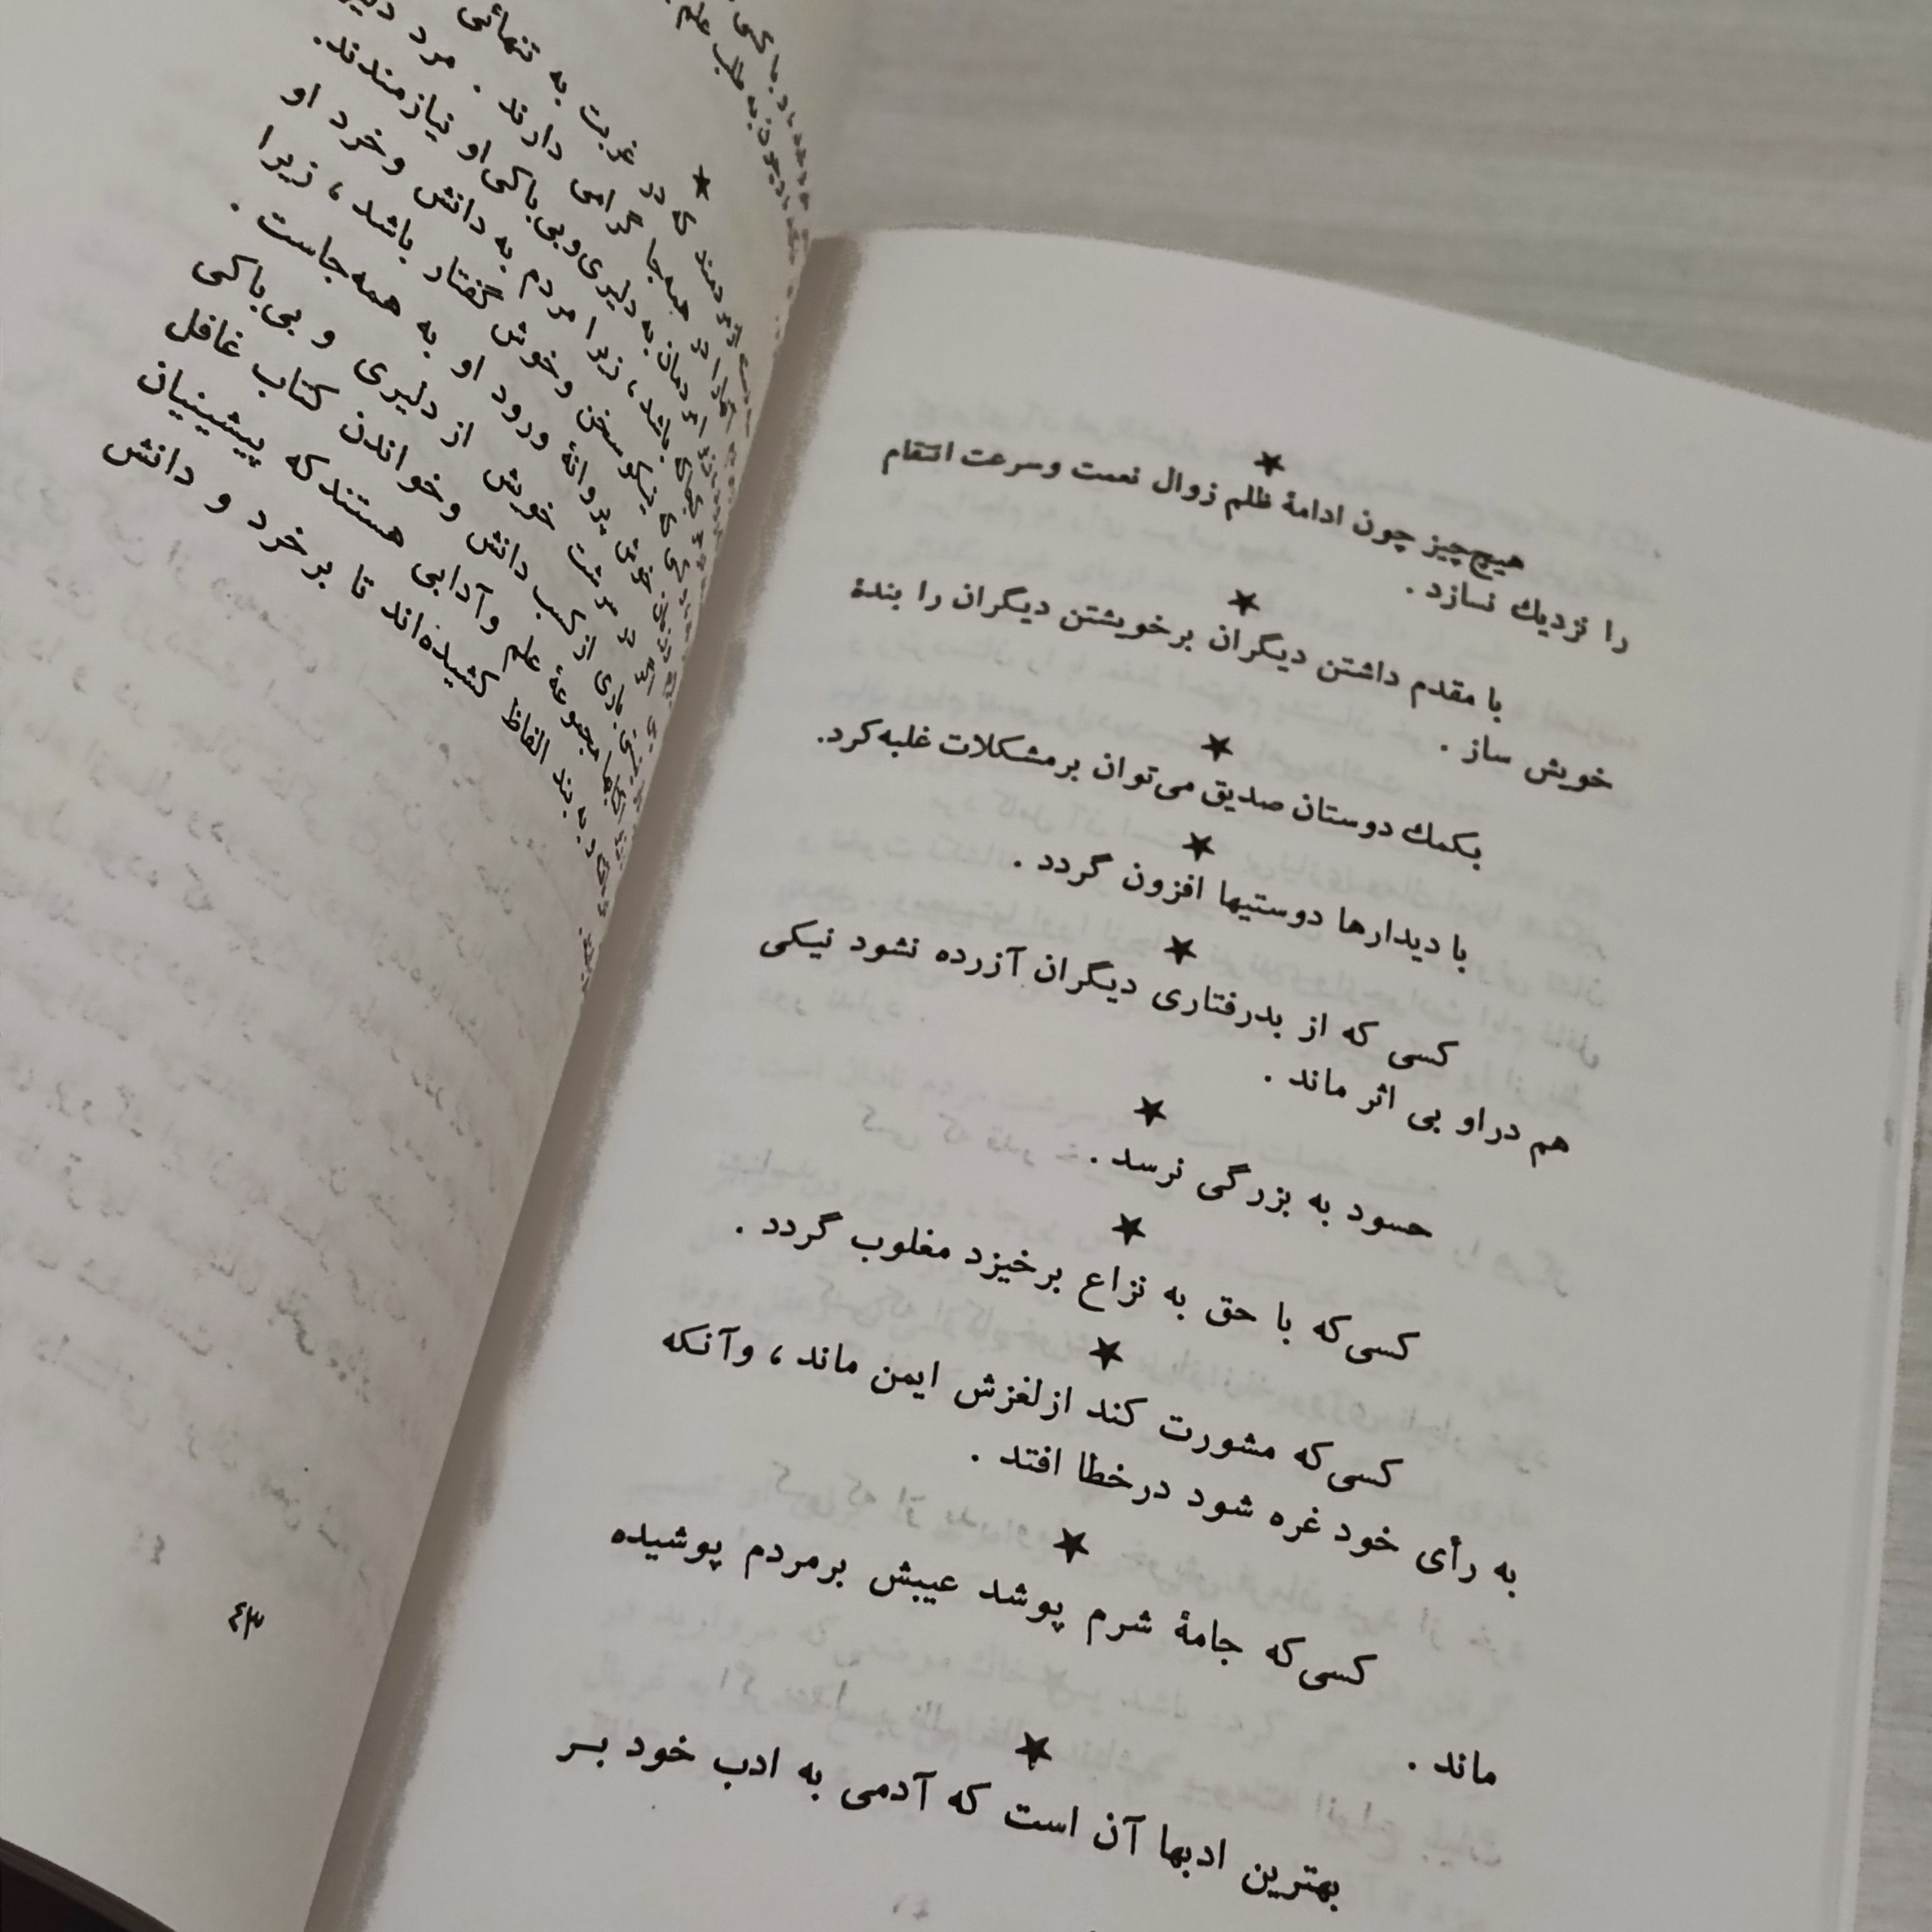 به تنهائی
★
که در غربت
همه‌جا گرامی دارند . مرد
به دلیری‌وبی‌باکی‌او نیازمندند.
باشد، زیرا مردم به دانش وخرد او
نیکوسخن وخوش گفتار باشد ، زیرا
خوش پروانهٔ ورود او به همه‌جاست .
در سرشت خویش از دلیری و بی‌باکی
باری ازکسب دانش وخواندن کتاب غافل
مجموعهٔ علم وآدابی هستندکه پیشینیان
به بند الفاظ کشیده‌اند تا برخرد و دانش
٤٣
★
هیچ‌چیز چون ادامهٔ ظلم زوال نعمت وسرعت انتقام
را نزدیك نسازد .
★
با مقدم داشتن دیگران برخویشتن دیگران را بندهٔ
خویش ساز .
★
بکمك دوستان صدیق می‌توان برمشکلات غلبه‌کرد.
★
با دیدارها دوستیها افزون گردد .
★
کسی که از بدرفتاری دیگران آزرده نشود نیکی
هم دراو بی اثر ماند .
★
حسود به بزرگی نرسد .
★
کسی‌که با حق به نزاع برخیزد مغلوب گردد .
★
کسی‌که مشورت کند ازلغزش ایمن ماند ، وآنکه
به رأی خود غره شود درخطا افتد .
★
کسی‌که جامهٔ شرم پوشد عیبش برمردم پوشیده
ماند .
★
بهترین ادبها آن است که آدمی به ادب خود بـر